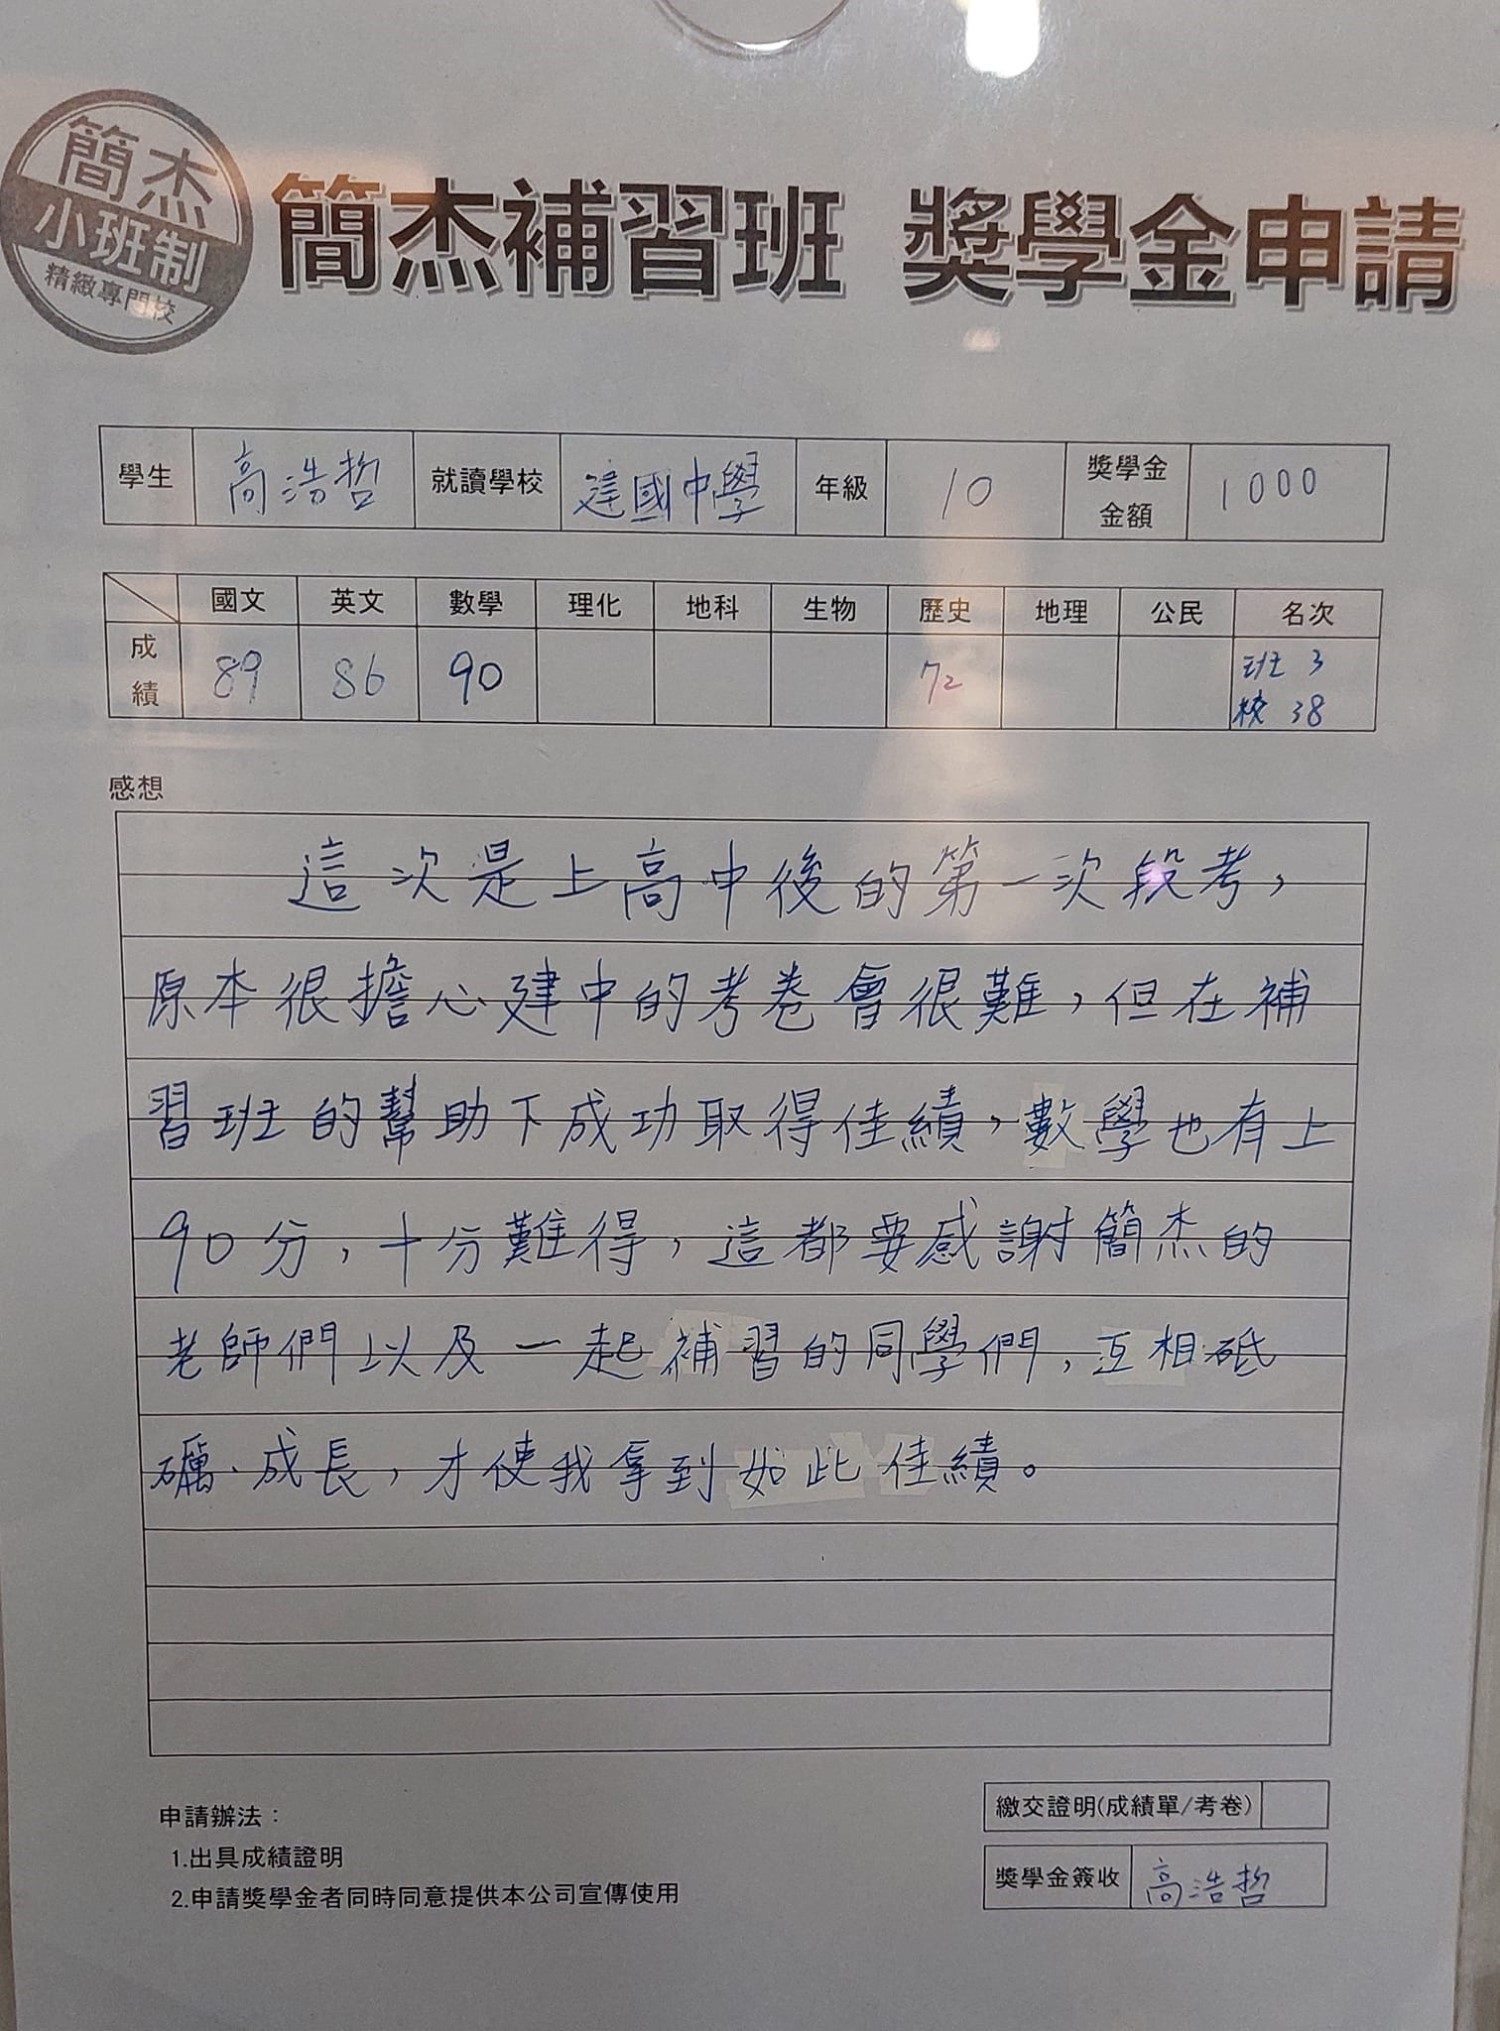 簡杰
小班制
精緻專門校
簡杰補習班 獎學金申請
學生 高浩哲 就讀學校 建國中學 年級 10 獎學金金額 1000
國文 英文 數學 理化 地科 生物 歷史 地理 公民 名次
成績 89 86 90 72 班 3
校 38
感想
這次是上高中後的第一次段考，
原本很擔心建中的考卷會很難，但在補
習班的幫助下成功取得佳績，數學也有上
90分，十分難得，這都要感謝簡杰的
老師們以及一起補習的同學們，互相砥
礪、成長，才使我拿到如此佳績。
申請辦法：
1.出具成績證明
2.申請獎學金者同時同意提供本公司宣傳使用
繳交證明(成績單/考卷)
獎學金簽收 高浩哲